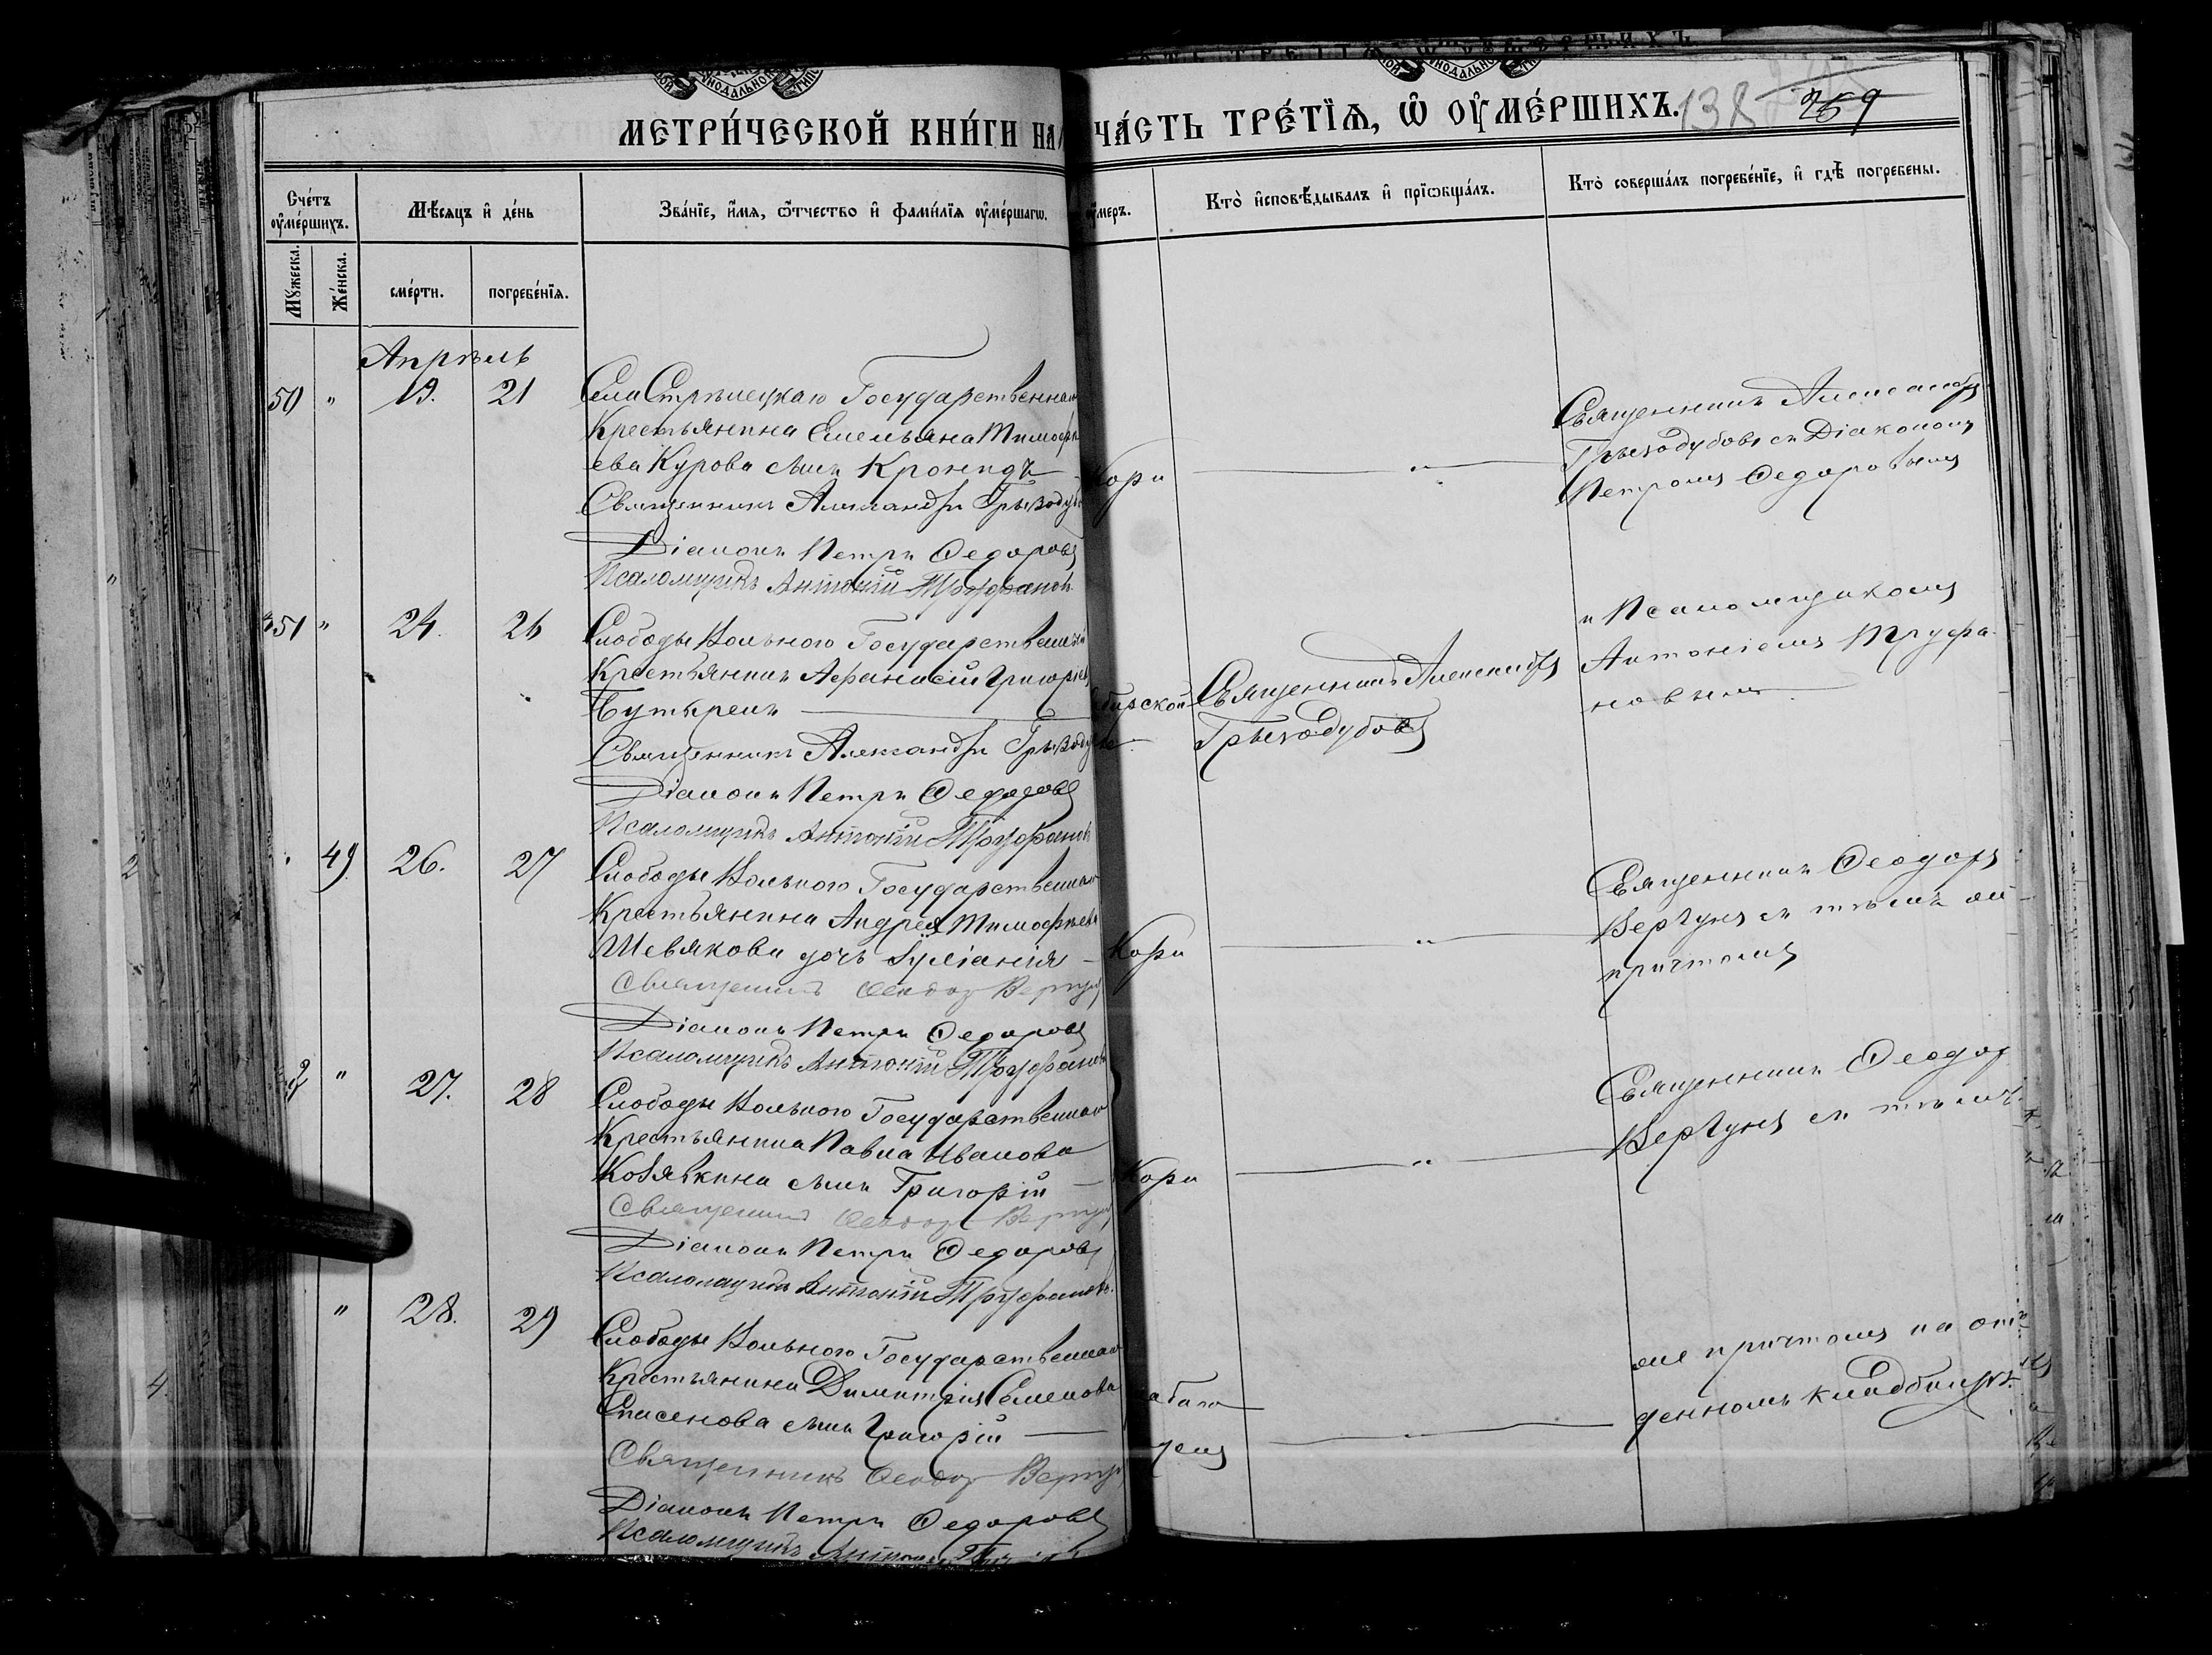 МЕТРИ́ЧЕСКОЙ КНИ́ГИ НА
ЧА́СТЬ ТРЕ́ТІѦ, Ѽ ОУ҆МЕ́РШИХЪ.
138
259
Сче́тъ
оу҆ме́ршихъ.
Мѣ́сяцъ и҆ де́нь
Зва́нїе, и҆́мя, ѻ҆́тчество и҆ фами́лїя оу҆ме́ршагѡ.
оу҆меръ.
Кто̀ и҆сповѣ́дывалъ и҆ прїѡбща́лъ.
Кто̀ соверша́лъ погребе́нїе, и҆ гдѣ̀ погребены.
Мꙋжеска.
Же́нска.
сме́рти.
погребе́нїя.
Апрѣль
50 " 19. 21
Села Стрѣлецкаго Государственнаго
Крестьянина Емельяна Тимофе
ева Курова сынъ Кронидъ
Священникъ Александръ Грызодуб
Діаконъ Петръ Федоровъ
Псаломщикъ Антоній Труфановъ
Кори "
Священникъ Александръ
Грызодубовъ съ Діакономъ
Петромъ Федоровымъ
51 " 24. 26
Слободы Вольного Государственный
Крестьянинъ Афанасій Григорьев
Бутыринъ
Священникъ Александръ Грызодубовъ
Діаконъ Петръ Федоровъ
Псаломщикъ Антоній Труфановъ
бирской
Священникъ Александръ
Грызодубовъ
и Псаломщикомъ
Антоніемъ Труфа-
новымъ
49 26. 27
Слободы Вольного Государственнаго
Крестьянина Андрея Тимофеева
Шевякова дочь Іуліанія
Священникъ Феодоръ Вергунъ
Діаконъ Петръ Федоровъ
Псаломщикъ Антоній Труфановъ
Кори "
Священникъ Феодоръ
Вергунъ съ тѣмъ же
причтомъ
2 " 27. 28
Слободы Вольного Государственнаго
Крестьянина Павла Иванова
Козявкина сынъ Григорій
Священникъ Феодоръ Вергунъ
Діаконъ Петръ Федоровъ
Псаломщикъ Антоній Труфановъ
Кори "
Священникъ Феодоръ
Вергунъ съ тѣмъ
" 28. 29
Слободы Вольного Государственнаго
Крестьянина Димитрія Семенова
сынъ Григорій
Священникъ Феодоръ Вергунъ
Діаконъ Петръ Федоровъ
Псаломщикъ Антоній
же причтомъ на отве
денномъ кладбищѣ.